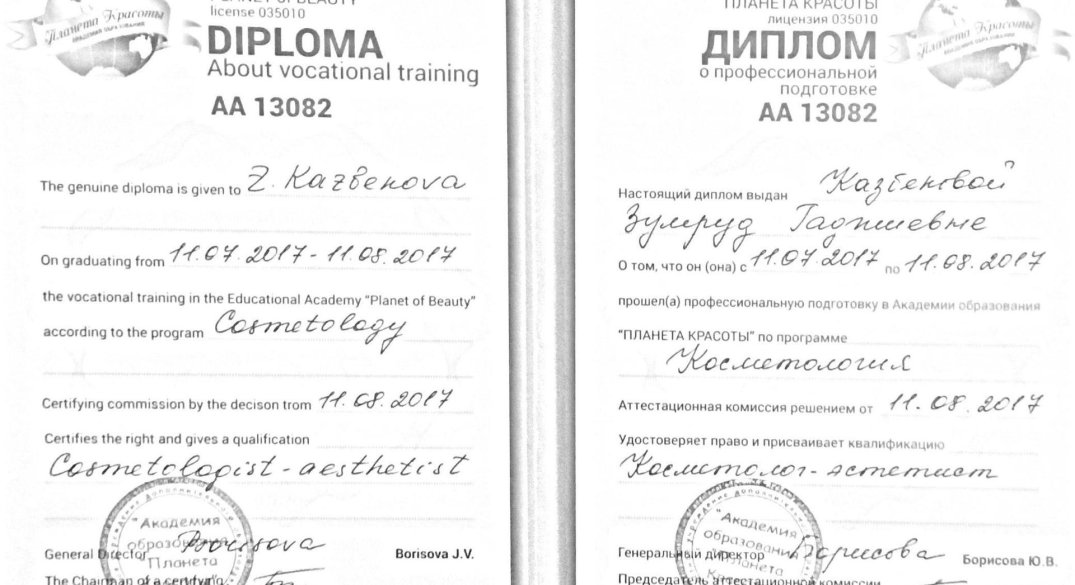 PLANET OF BEAUTY
license 035010
Планета Красоты
АКАДЕМИЯ ОБРАЗОВАНИЯ
DIPLOMA
About vocational training
AA 13082
The genuine diploma is given to Z. Kazbekova
On graduating from 11.07.2017 - 11.08.2017
the vocational training in the Educational Academy "Planet of Beauty"
according to the program Cosmetology
Certifying commission by the decison trom 11.08.2017
Certifies the right and gives a qualification
Cosmetologist - aesthetist
"Академия
образования
Планета
General Director Borisova Borisova J.V.
The Chairman of a certifying
ПЛАНЕТА КРАСОТЫ
лицензия 035010
Планета Красоты
АКАДЕМИЯ ОБРАЗОВАНИЯ
ДИПЛОМ
о профессиональной
подготовке
АА 13082
Настоящий диплом выдан Казбековой
Зумруд Гаджиевне
О том, что он (она) с 11.07.2017 по 11.08.2017
прошел(а) профессиональную подготовку в Академии образования
"ПЛАНЕТА КРАСОТЫ" по программе
Косметология
Аттестационная комиссия решением от 11.08.2017
Удостоверяет право и присваивает квалификацию
Косметолог - эстетист
"Академия
образования
Планета
Генеральный директор Борисова Борисова Ю.В.
Председатель аттестационной комиссии